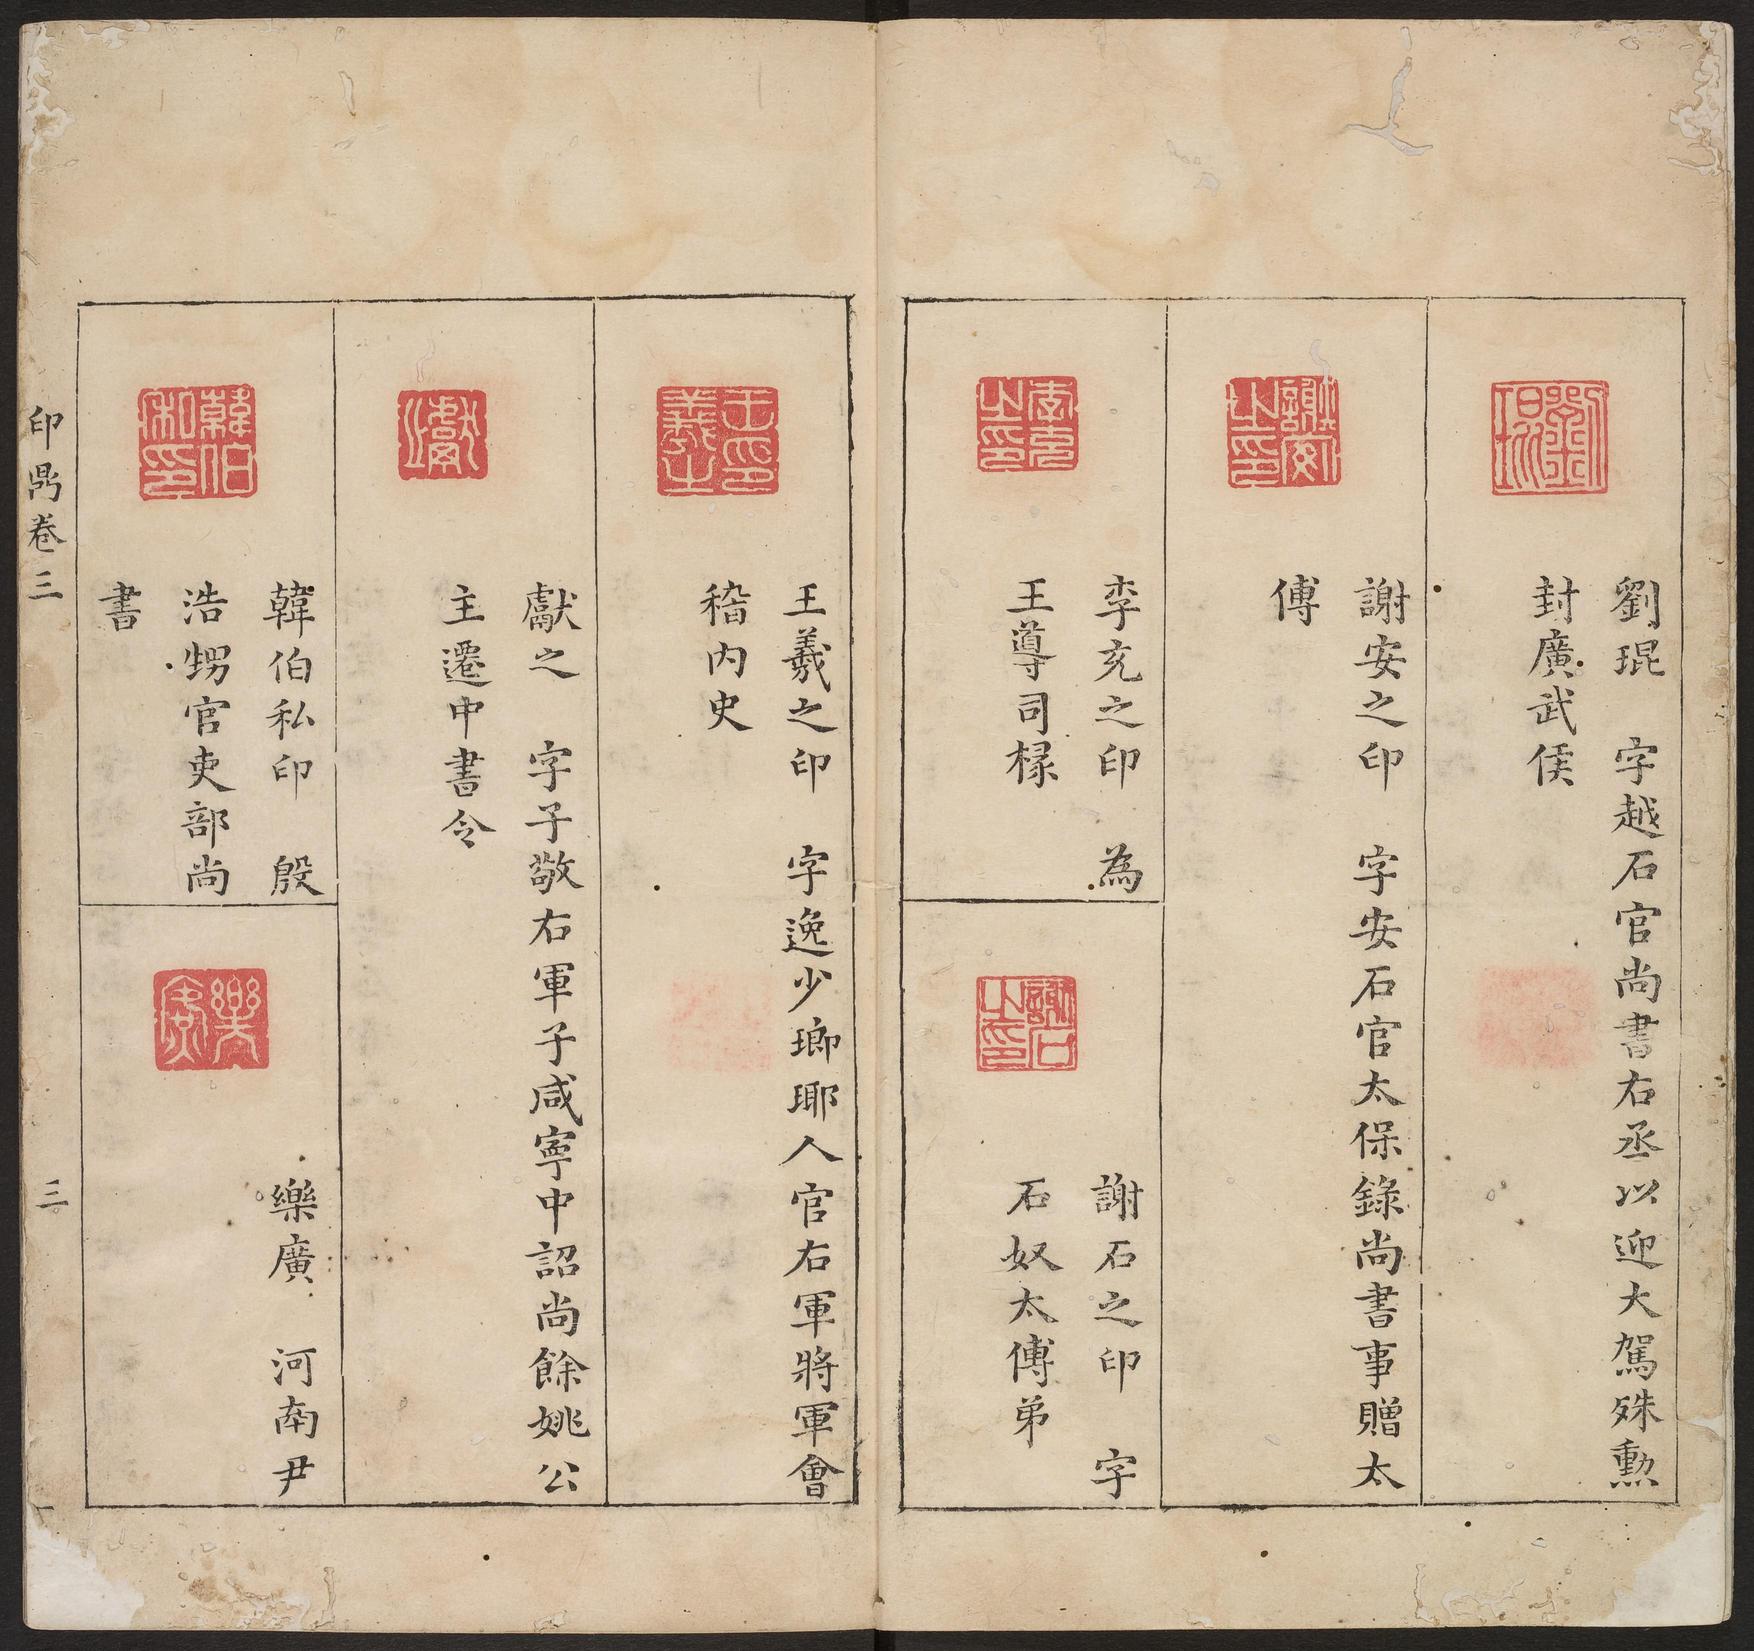 劉琨　字越石官尚書右丞以迎大駕殊勲
封廣武侯
謝安之印　字安石官太保錄尚書事贈太
傅
李充之印　為
王導司椽
謝石之印　字
石奴太傅弟
王羲之印　字逸少瑯琊人官右軍將軍會
稽內史
獻之　字子敬右軍子咸寧中詔尚餘姚公
主遷中書令
韓伯私印　殷
浩甥官吏部尚
書
樂廣　河南尹
印鼎卷三
三
劉琨
謝安之印
李充之印
謝石之印
王羲之印
獻之
韓伯私印
樂廣